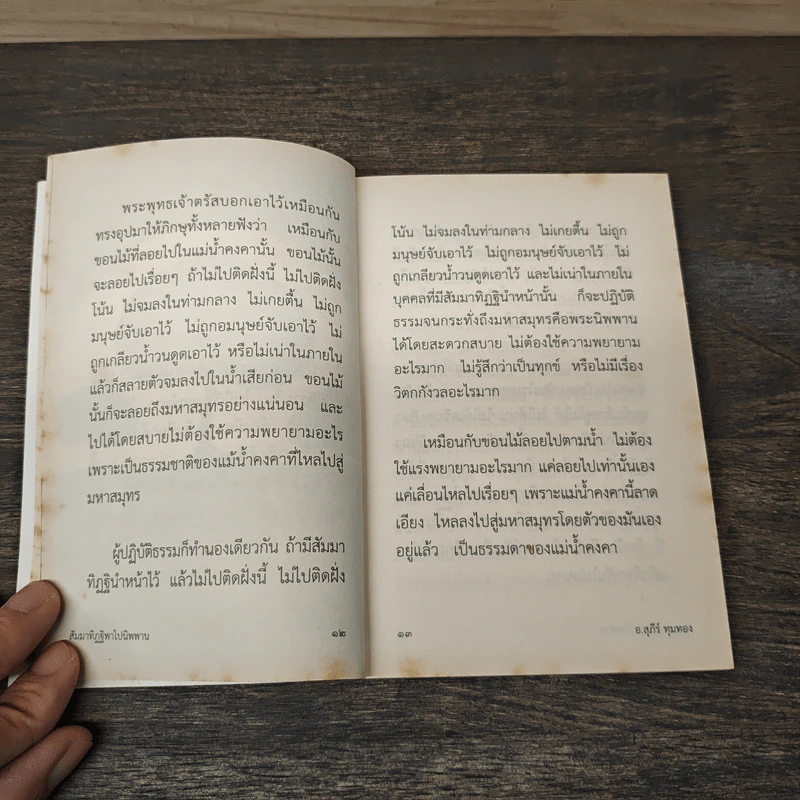 พระพุทธเจ้าตรัสบอกเอาไว้เหมือนกัน
ทรงอุปมาให้ภิกษุทั้งหลายฟังว่า เหมือนกับ
ขอนไม้ที่ลอยไปในแม่น้ำคงคานั้น ขอนไม้นั้น
จะลอยไปเรื่อยๆ ถ้าไม่ไปติดฝั่งนี้ ไม่ไปติดฝั่ง
โน้น ไม่จมลงในท่ามกลาง ไม่เกยตื้น ไม่ถูก
มนุษย์จับเอาไว้ ไม่ถูกอมนุษย์จับเอาไว้ ไม่
ถูกเกลียวน้ำวนดูดเอาไว้ หรือไม่เน่าในภายใน
แล้วก็สลายตัวจมลงไปในน้ำเสียก่อน ขอนไม้
นั้นก็จะลอยถึงมหาสมุทรอย่างแน่นอน และ
ไปได้โดยสบายไม่ต้องใช้ความพยายามอะไร
เพราะเป็นธรรมชาติของแม้น้ำคงคาที่ไหลไปสู่
มหาสมุทร
ผู้ปฏิบัติธรรมก็ทำนองเดียวกัน ถ้ามีสัมมา
ทิฏฐินำหน้าไว้ แล้วไม่ไปติดฝั่งนี้ ไม่ไปติดฝั่ง
สัมมาทิฏฐิพาไปนิพพาน ๑๒
โน้น ไม่จมลงในท่ามกลาง ไม่เกยตื้น ไม่ถูก
มนุษย์จับเอาไว้ ไม่ถูกอมนุษย์จับเอาไว้ ไม่
ถูกเกลียวน้ำวนดูดเอาไว้ และไม่เน่าในภายใน
บุคคลที่มีสัมมาทิฏฐินำหน้านั้น ก็จะปฏิบัติ
ธรรมจนกระทั่งถึงมหาสมุทรคือพระนิพพาน
ได้โดยสะดวกสบาย ไม่ต้องใช้ความพยายาม
อะไรมาก ไม่รู้สึกว่าเป็นทุกข์ หรือไม่มีเรื่อง
วิตกกังวลอะไรมาก
เหมือนกับขอนไม้ลอยไปตามน้ำ ไม่ต้อง
ใช้แรงพยายามอะไรมาก แค่ลอยไปเท่านั้นเอง
แค่เลื่อนไหลไปเรื่อยๆ เพราะแม่น้ำคงคานี้ลาด
เอียง ไหลลงไปสู่มหาสมุทรโดยตัวของมันเอง
อยู่แล้ว เป็นธรรมดาของแม่น้ำคงคา
๑๓ อ.สุภีร์ ทุมทอง